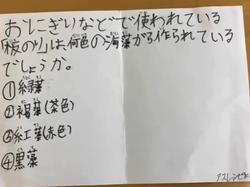 おにぎりなどで使われている
「板のり」は、何色の海藻から作られている
でしょうか。
①緑藻
②褐藻(茶色)
③紅藻(赤色)
④黒藻